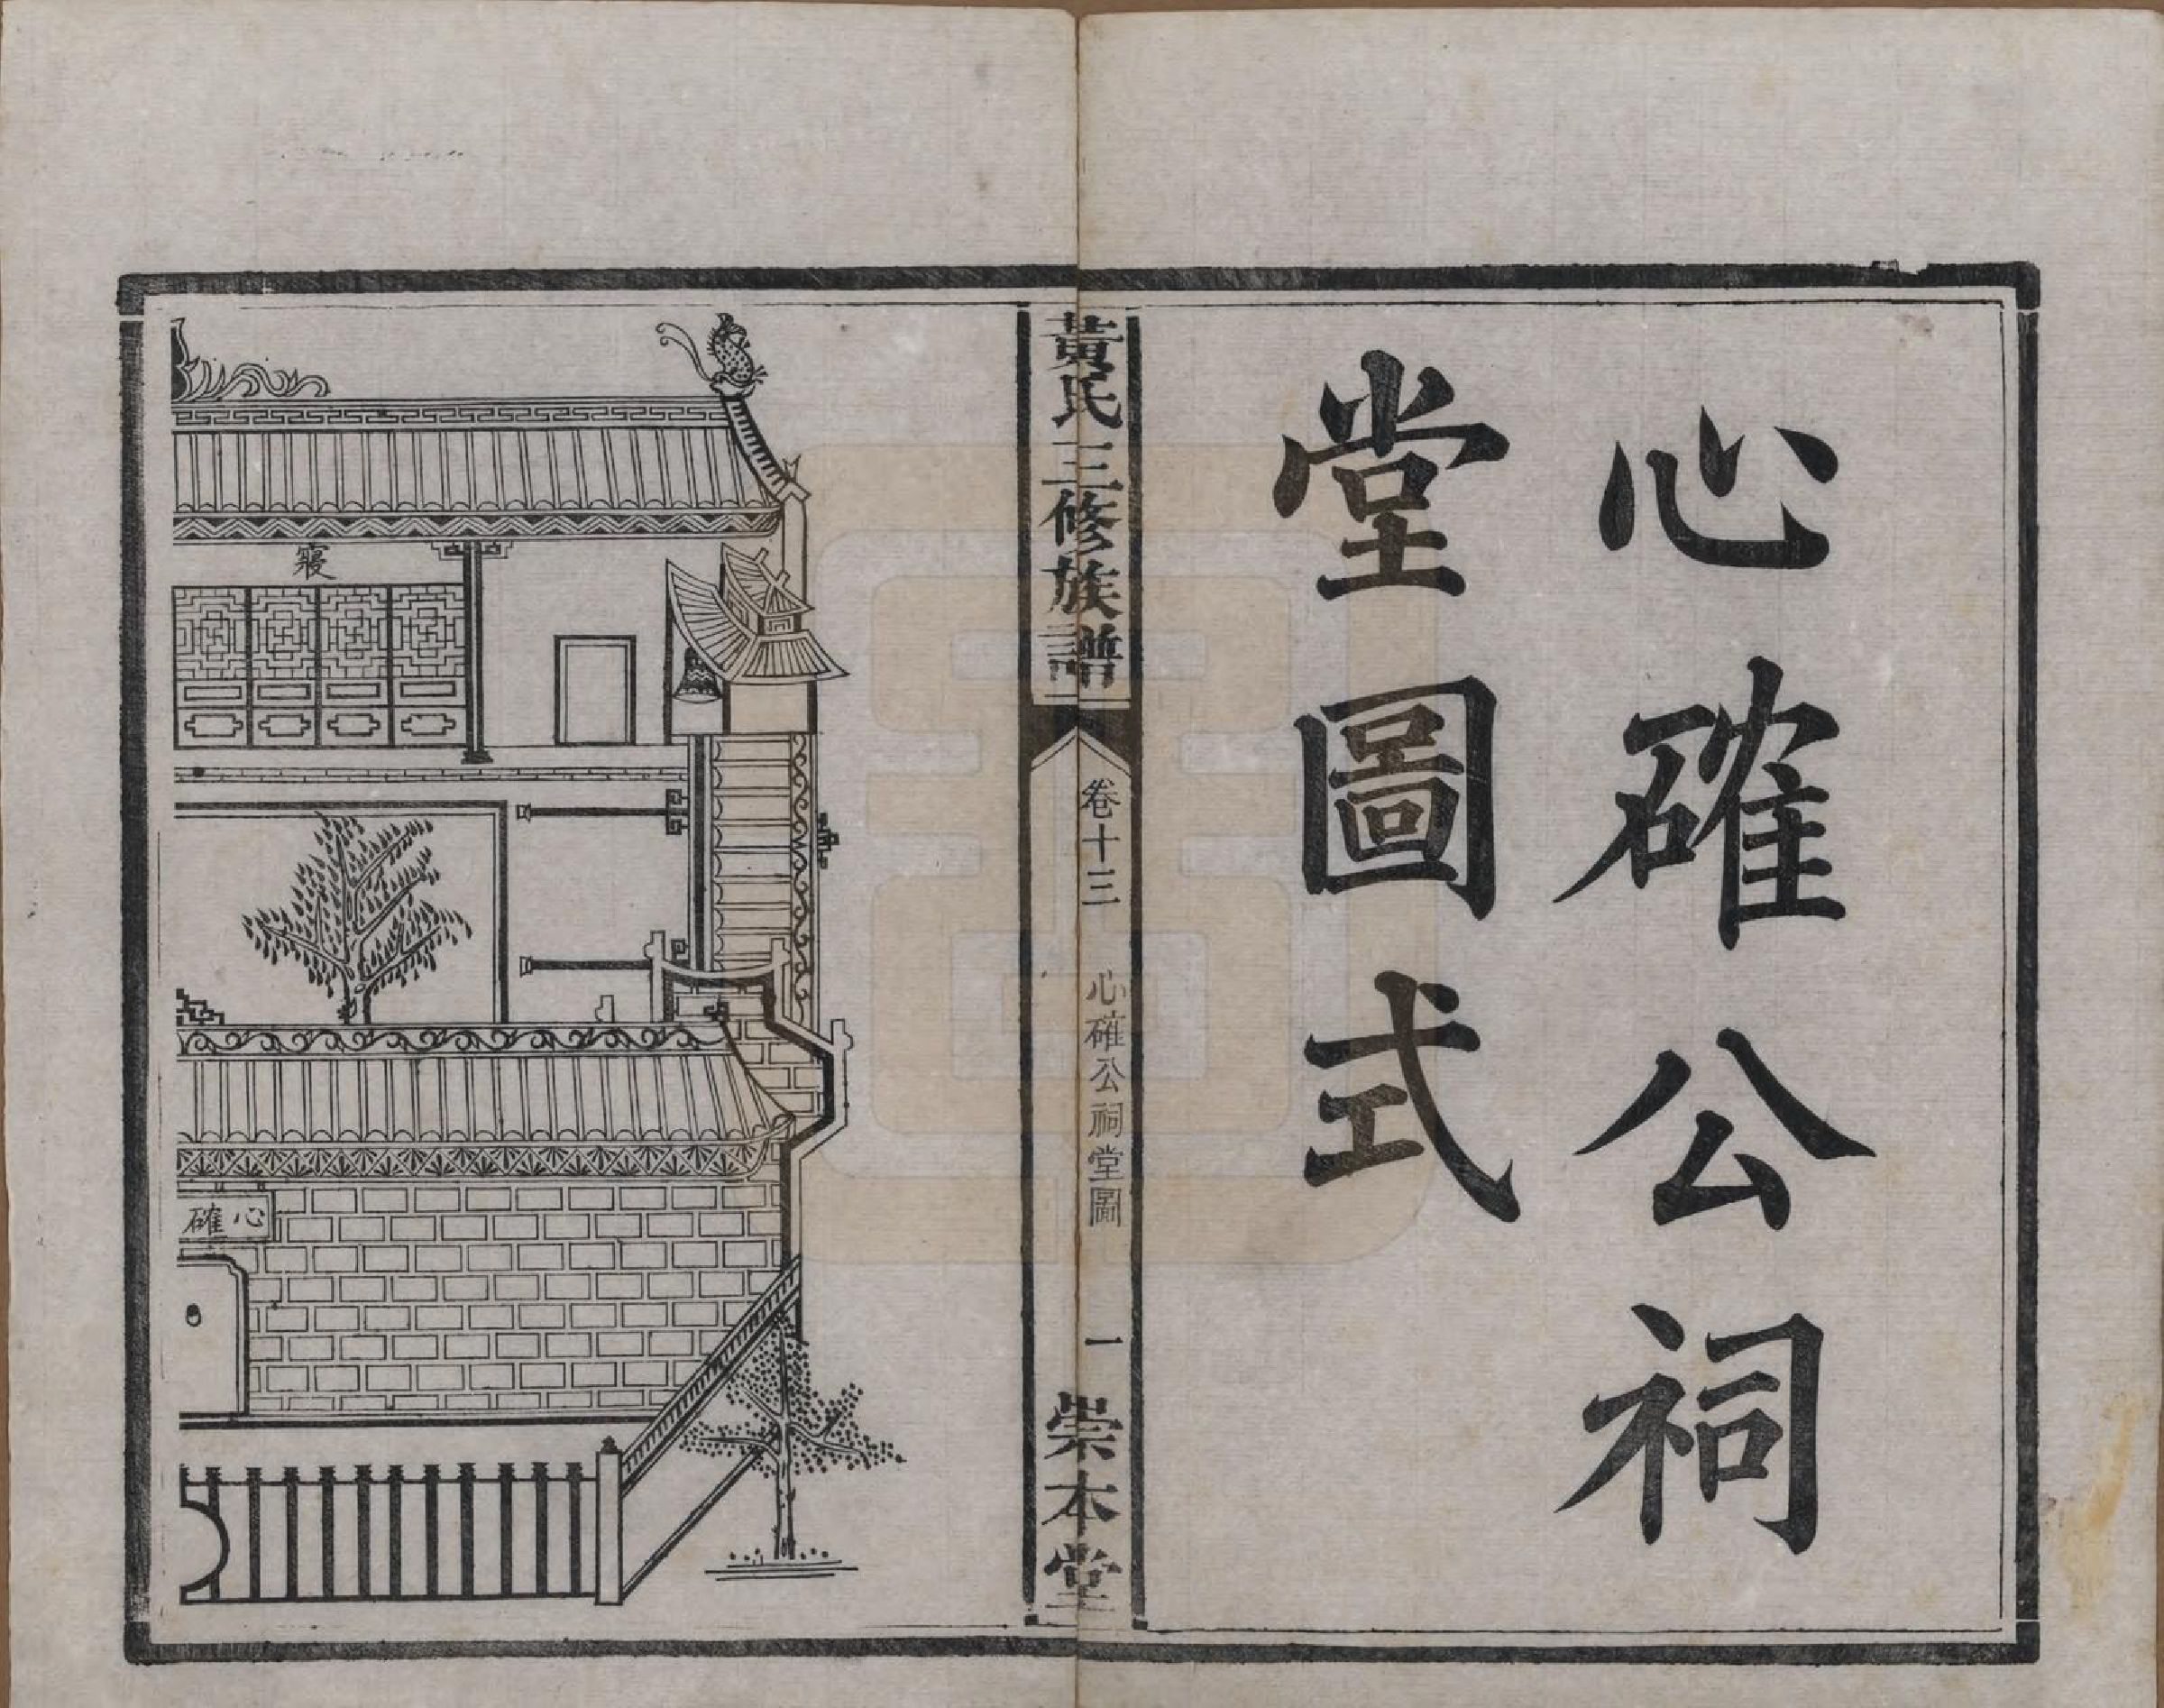 心確公祠
堂圖式
黃氏三修族譜
卷十三
心確公祠堂圖
一
崇本堂
寢
心確